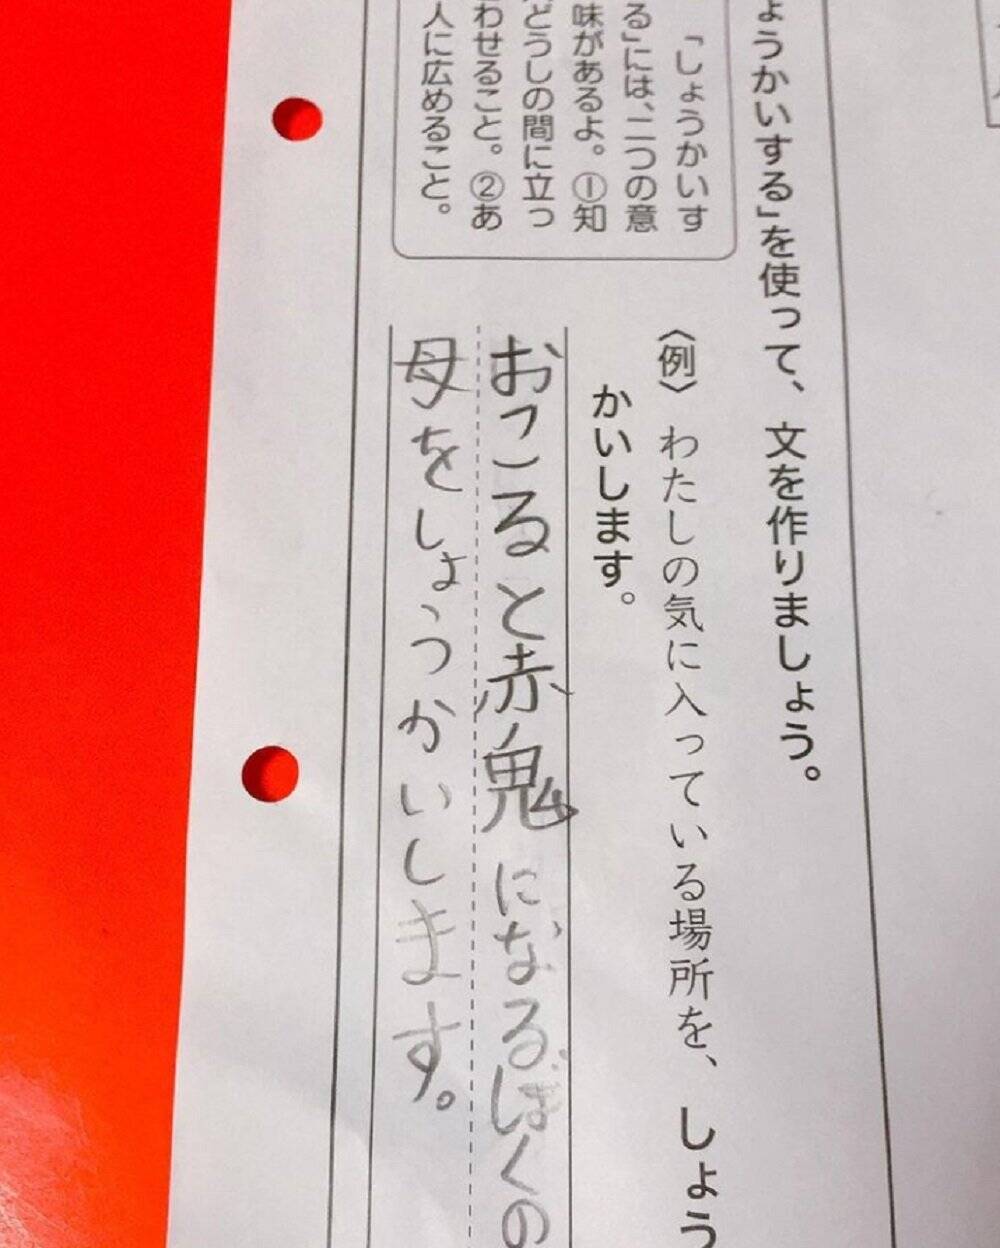 ょうかいする」を使って、文を作りましょう。
〈例〉わたしの気に入っている場所を、しょう
かいします。
「しょうかいす
る」には、二つの意
味があるよ。①知
どうしの間に立っ
わせること。②あ
人に広めること。
おこると赤鬼になるぼくの
母をしょうかいします。